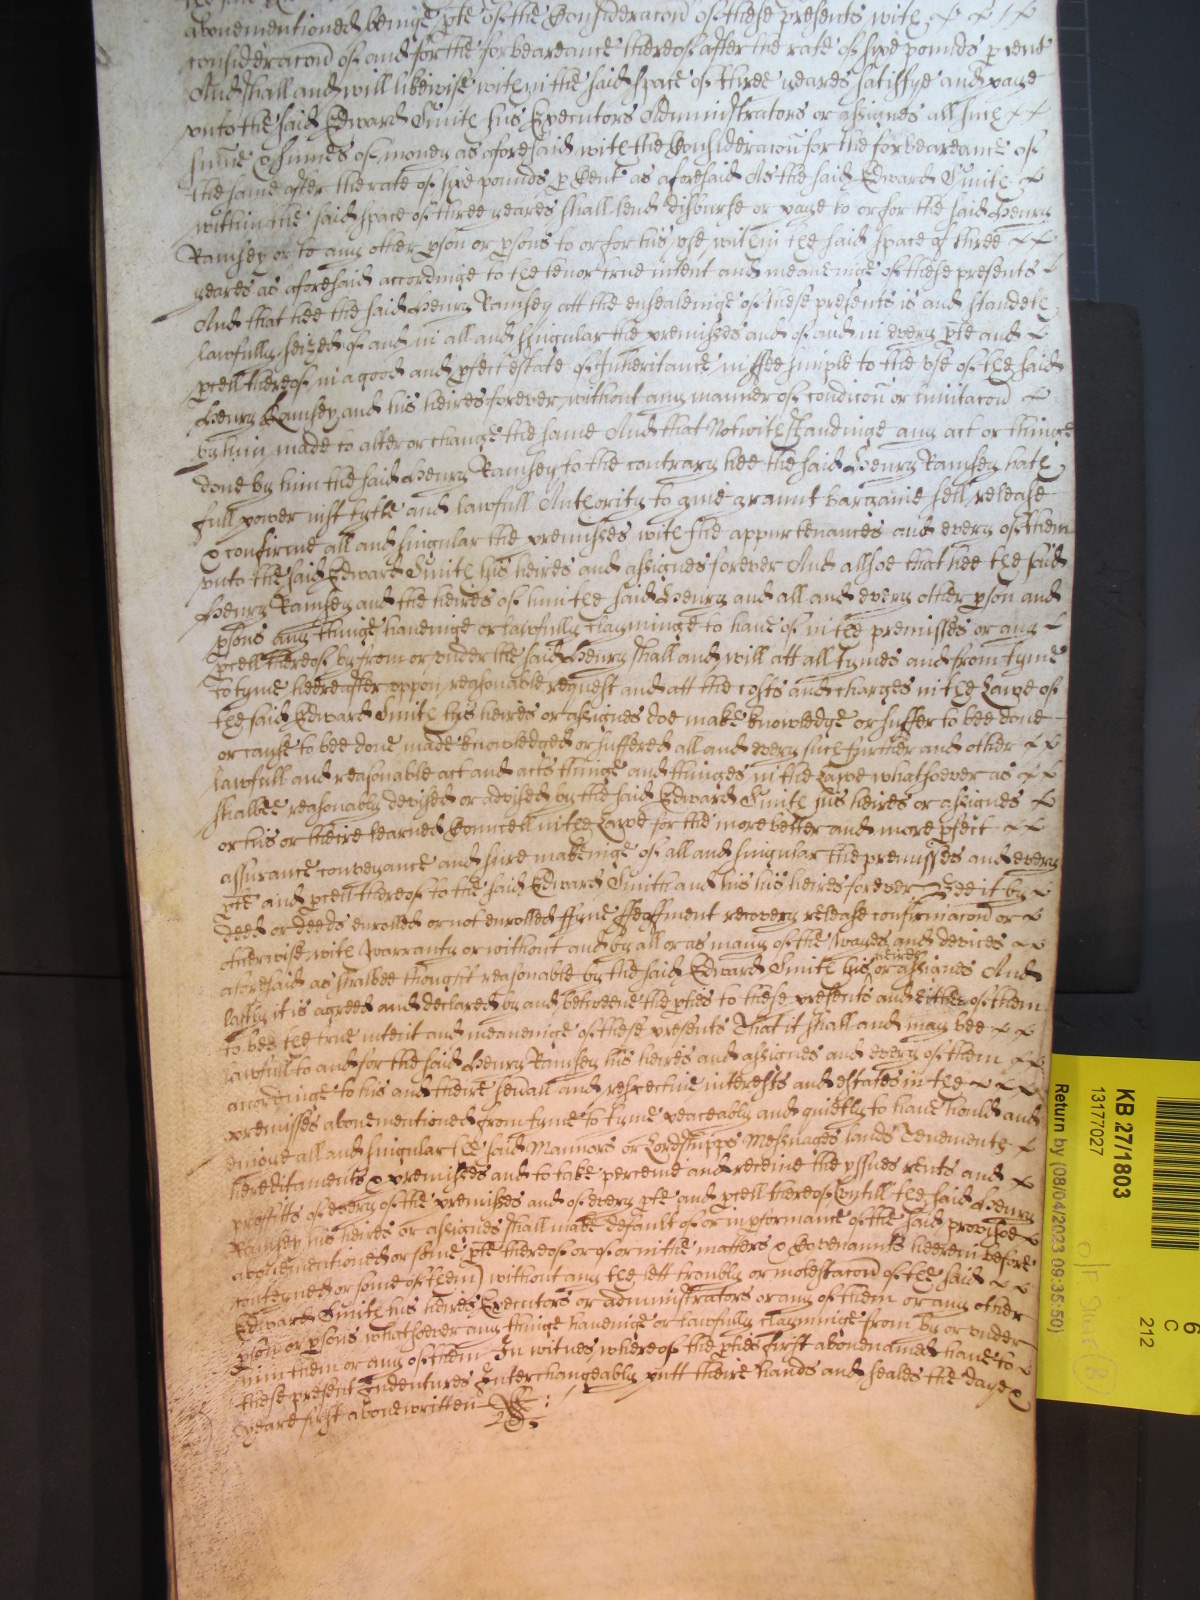 abovementioned beinge pte of the Consideracon of these presents with
consideracon of and for the forbearance thereof after the rate of sixe pounds p cent
And shall and will likewise within the said space of three yeares satisfye and paye
vnto the said Edward Smith his Executors Administrators or assignes all such
sume & sumes of money as aforesaid with the Consideracon for the forbearance of
the same after the rate of sixe pounds p Cent as aforesaid As the said Edward Smith
within the said space of three yeares shall lend disburse or paye to or for the said Henry
Ramsey or to any other pson or psons to or for his vse within the said space of three
yeares as aforesaid accordinge to the tenor true intent and meaneinge of these presents
And that hee the said Henry Ramsey att the ensealeinge of these presents is and standeth
lawfully seized of and in all and singular the premisses and of and in every pte and
pcell thereof in a good and pfect estate of Inheritance in ffee simple to the vse of the said
Henry Ramsey and his heires forever without any manner of condicon or limitacon
by him made to alter or change the same And that Notwithstandinge any act or thinge
done by him the said Henry Ramsey to the contrary hee the said Henry Ramsey hath
full power iust tytle and lawfull Authority to give graunt bargaine sell release
& confirme all and singular the premisses with the appurtenances and every of them
vnto the said Edward Smith his heires and assignes forever And allsoe that hee the said
Henry Ramsey and the heires of him the said Henry and all and every other pson and
psons any thinge haveinge or lawfully clayminge to have of in the premisses or any
pcell thereof by from or vnder the said Henry shall and will att all tymes and from tyme
to tyme heereafter vppon reasonable request and att the costs and charges in the Lawe of
the said Edward Smith his heires or assignes doe make knowledge or suffer to bee done
or cause to bee done made knowledged or suffered all and every such further and other
lawfull and reasonable act and acts thinge and thinges in the Lawe whatsoever as
shalbee reasonably devised or advised by the said Edward Smith his heires or assignes
or his or theire learned Councell in the Lawe for the more better and more pfect
assurance conveyance and sure makeinge of all and singular the premisses and every
pte and pcell thereof to the said Edward Smith and his his heires forever Bee it by
deed or deeds enrolled or not enrolled ffyne ffeoffment recovery release confirmacon or
otherwise with warranty or without and by all or as many of the wayes and devices
aforesaid as shalbee thought reasonable by the said Edward Smith his heires or assignes And
lastly it is agreed and declared by and betweene the pties to these presents and either of them
to bee the true intent and meaneinge of these presents That it shall and may bee
lawfull to and for the said Henry Ramsey his heires and assignes and every of them
accordinge to his and theire severall and respective interests and estates in the
premisses abovementioned from tyme to tyme peaceably and quietly to have hould and
enioye all and singular the said Mannors or Lordshipps Messuages lands Tenements
hereditaments & premisses and to take perceive and receive the yssues rents and
proffitts of every of the premisses and of every pte and pcell thereof (vntill the said Henry
Ramsey his heires or assignes shall make default of or in pformance of the said provisoe
abovementioned or some pte thereof or of or in the matters & Covenannts heerein before
conteyned or some of them) without any the lett trouble or molestacon of the said
Edward Smith his heires Executors or administrators or any of them or any other
pson or psons whatsoever any thinge haveinge or lawfully clayminge from by or vnder
him them or any of them In witnes whereof the pties first abovenamed have to
these present Indentures Interchangeably putt theire hands and seales the daye &
yeare first abovewritten
KB 2771803
13177027
Return by (08/04/2023 09:35:50)
6
C
212